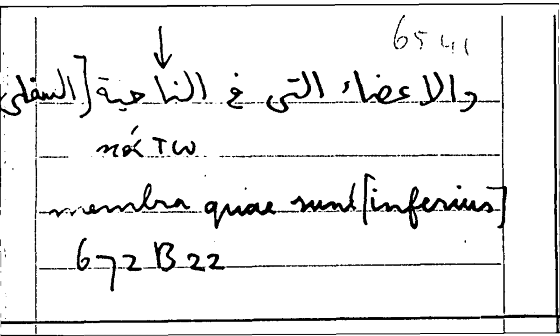 6541
والاعضاء التى فى الناحية [السفلى
κάτω
membra quae sunt [inferius]
672 B 22